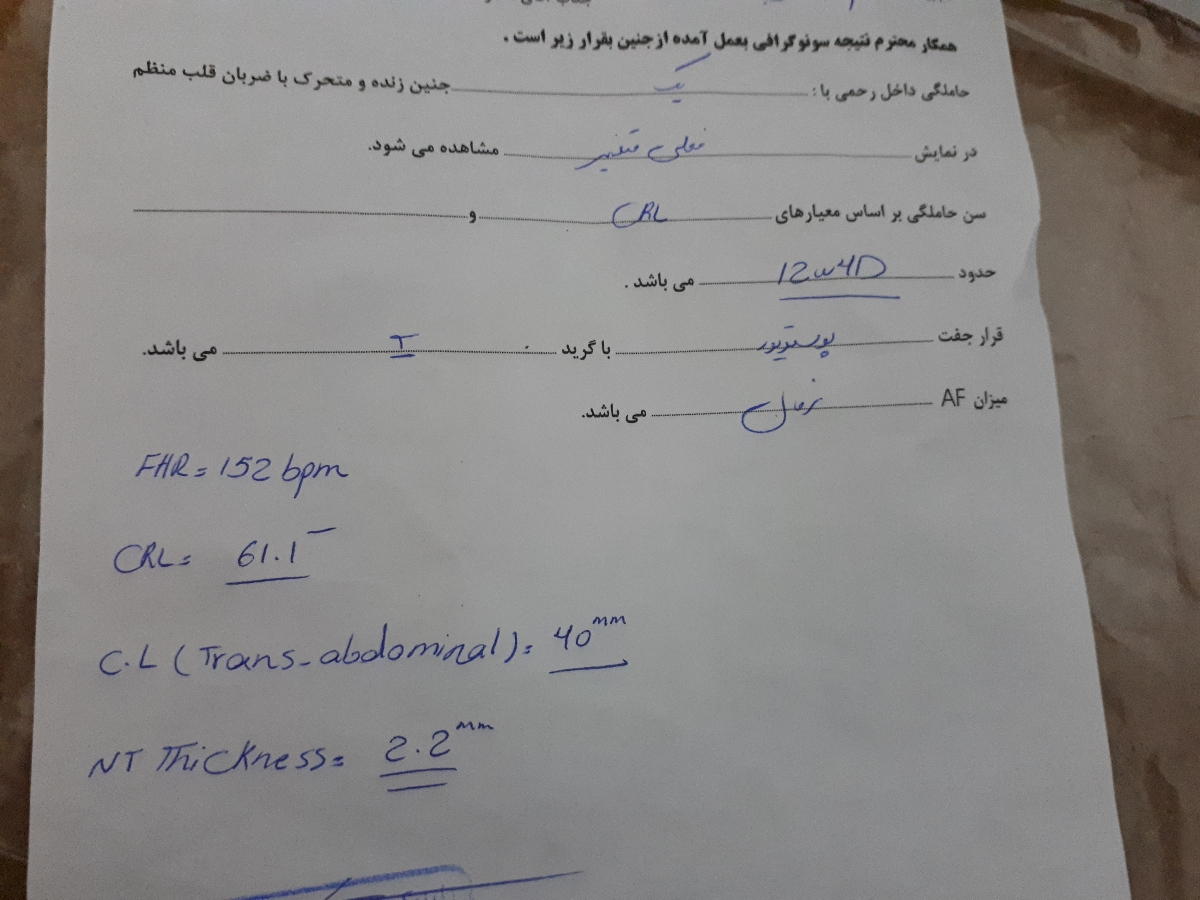 همکار محترم نتیجه سونوگرافی بعمل آمده از جنین بقرار زیر است .
حاملگی داخل رحمی با : یک جنین زنده و متحرک با ضربان قلب منظم
در نمایش فعلی متغیر مشاهده می شود.
سن حاملگی بر اساس معیارهای CRL و
حدود 12w4D می باشد .
قرار جفت پوستریور با گرید I می باشد.
میزان AF نرمال می باشد.
FHR = 152 bpm
CRL = 61.1
C.L (Trans-abdominal) = 40 mm
NT Thickness = 2.2 mm